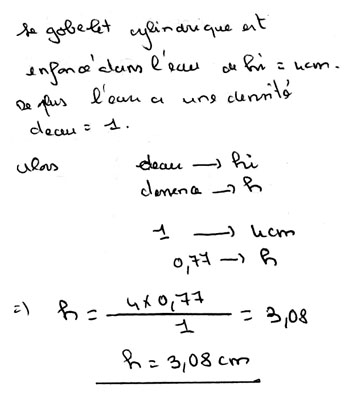 Le gobelet cylindrique est
enfoncé dans l'eau de hi = 4cm.
De plus l'eau a une densité
deau = 1.
alors deau → hi
→ h
1 → 4cm
0,77 → h
=> h = 4 x 0,77 / 1 = 3,08
h = 3,08 cm